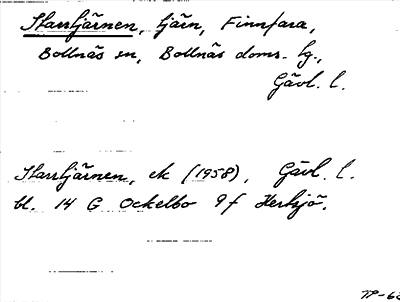 Starrtjärnen, tjärn, Finnfara,
Bollnäs sn, Bollnäs doms. lg.,
Gävl. l.
Starrtjärnen, ek (1958), Gävl. l.
bl. 14 G Ockelbo 9f Herksjö.
TP-62